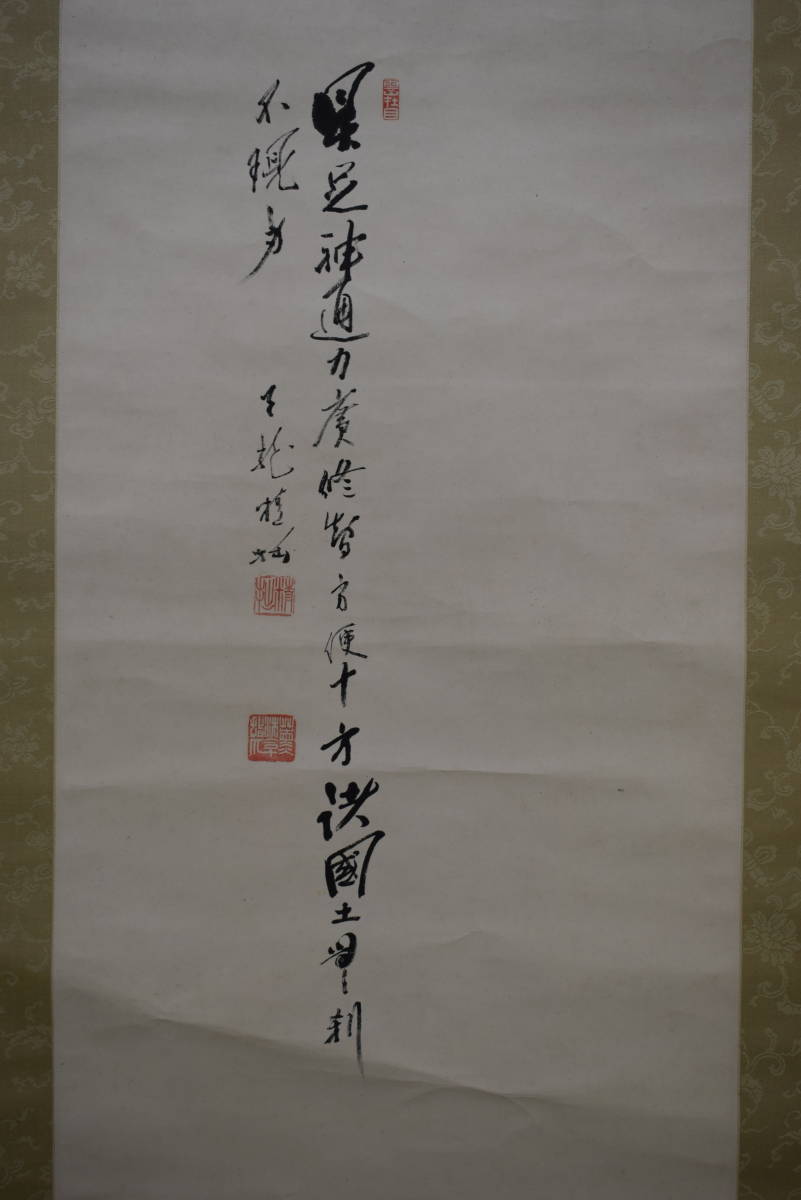 具足神通力廣修智方便十方諸國土無刹
不現身
天龍